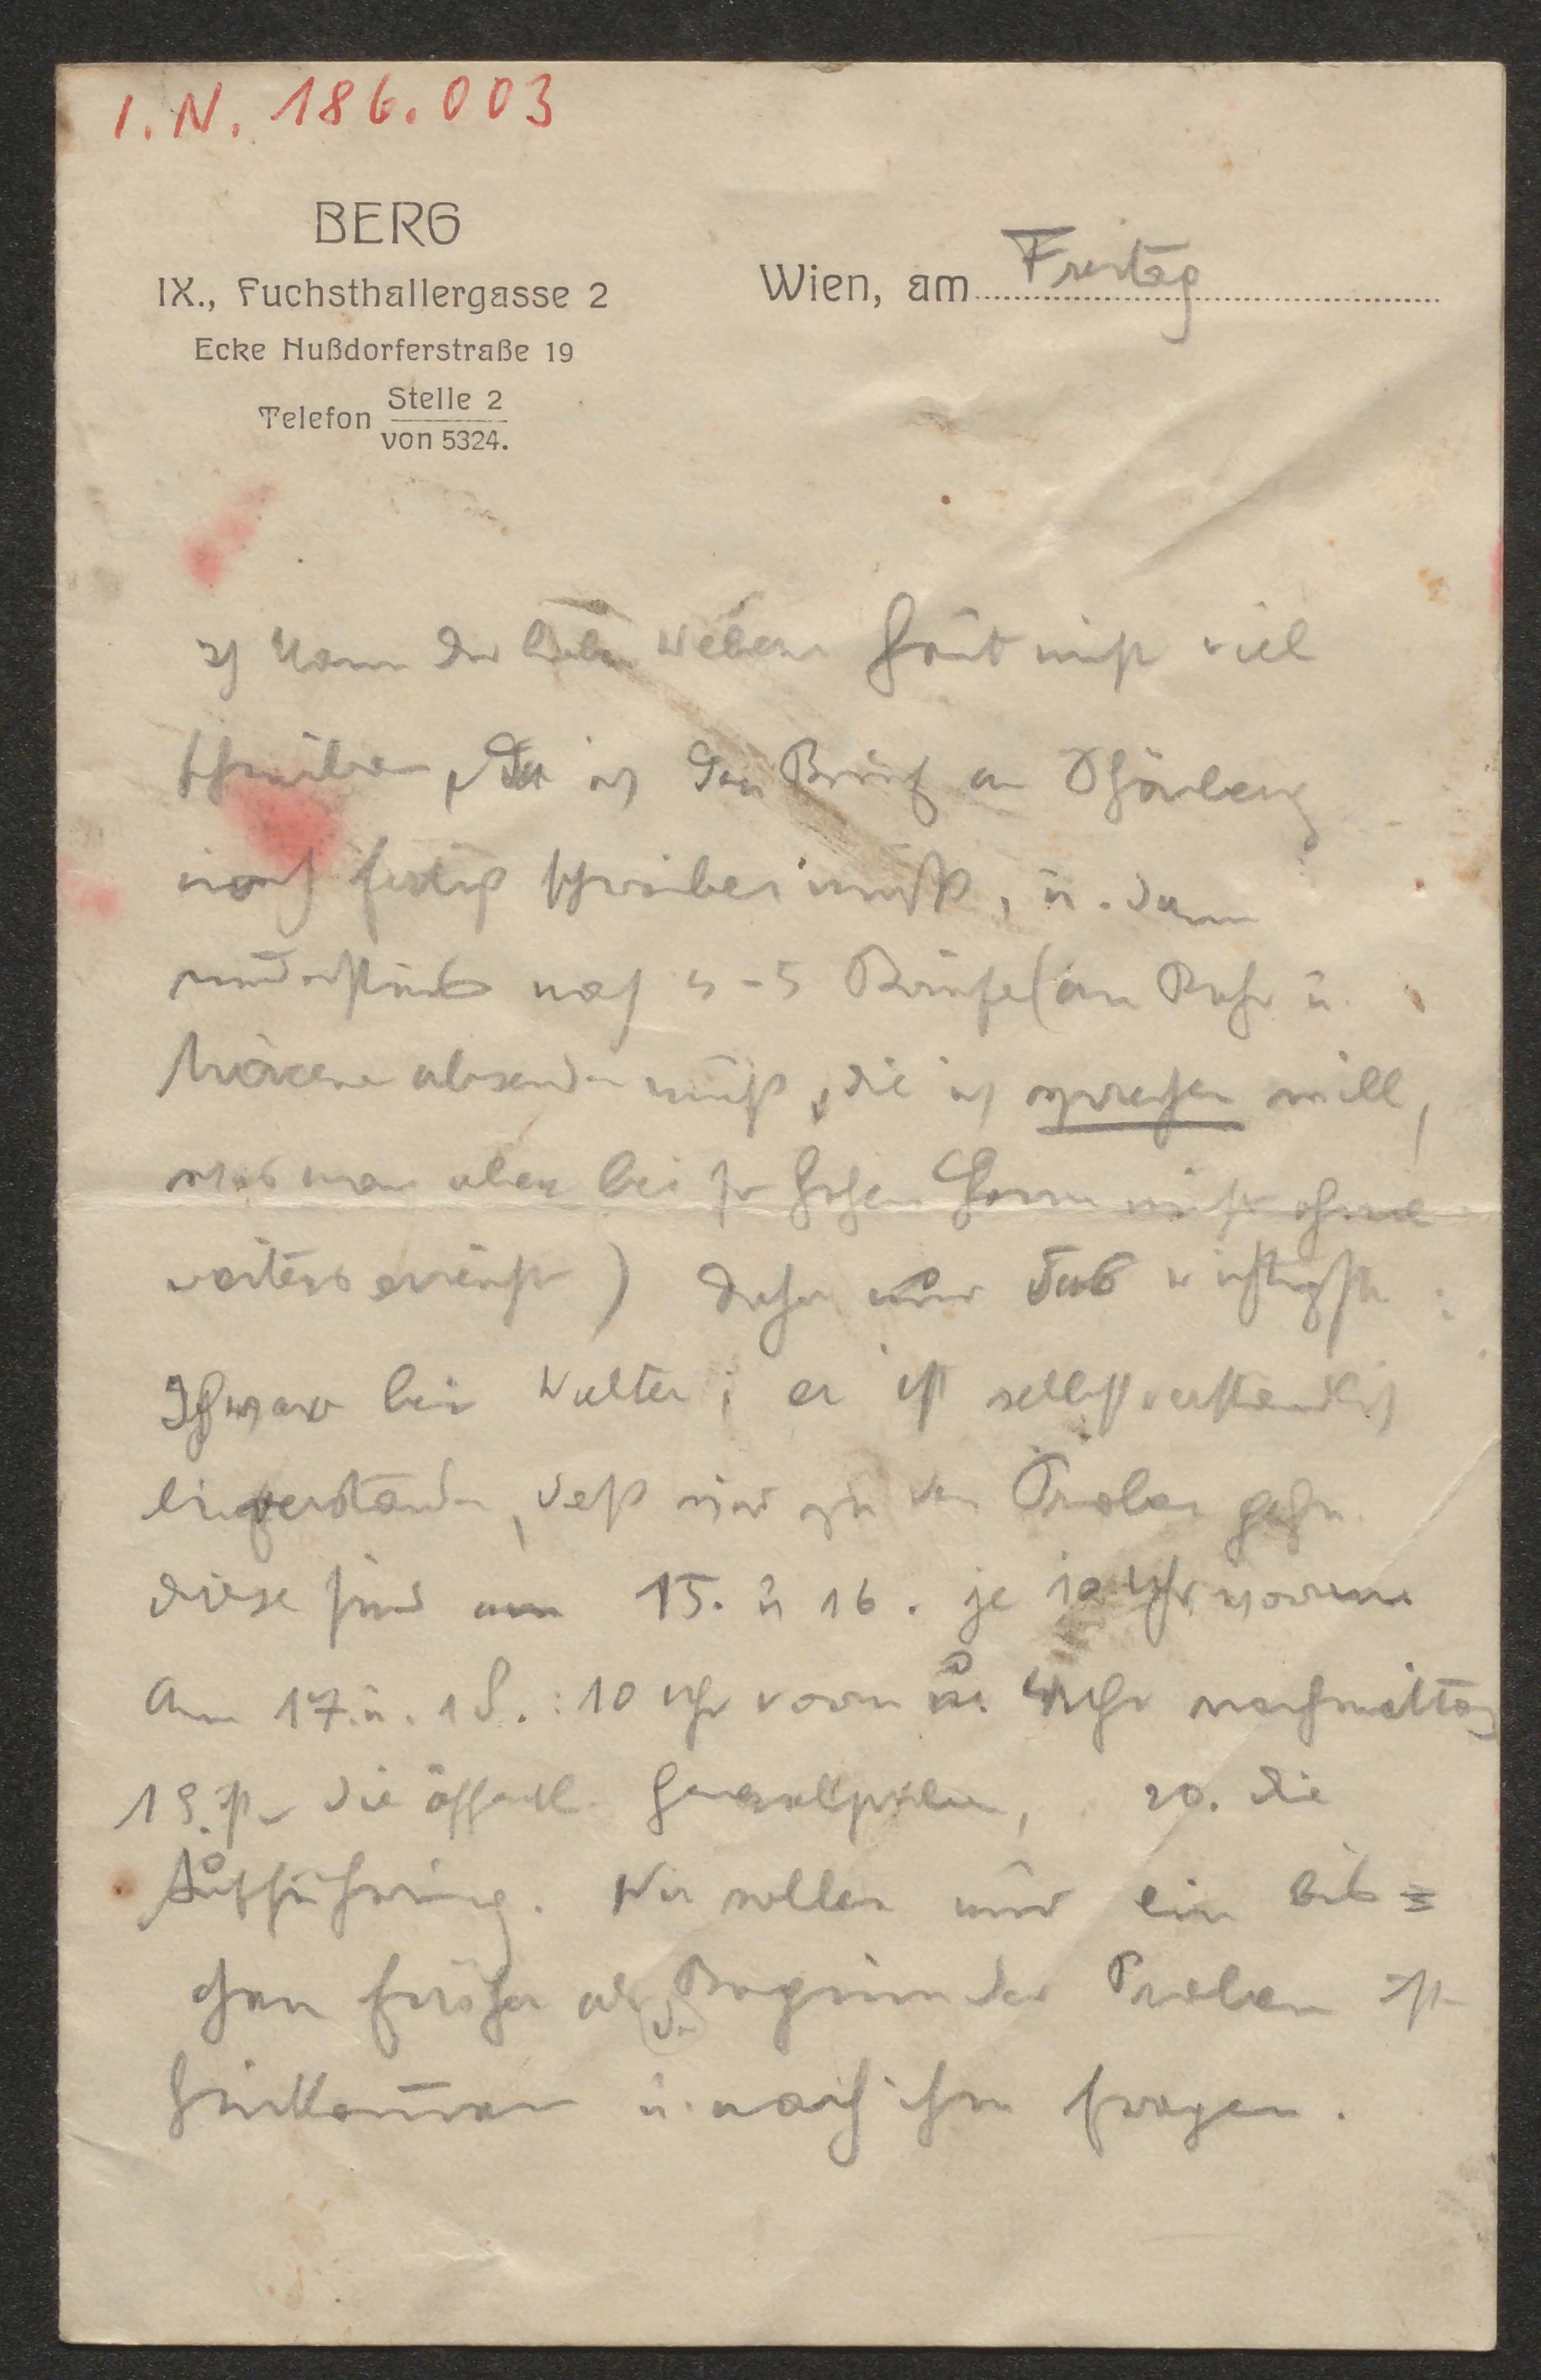 I.N. 186.003
BERG
IX., Fuchsthallergasse 2
Ecke Nußdorferstraße 19
Telefon Stelle 2
von 5324.
Wien, am Freitag
Ich kann Dir lieber Webern heut nicht viel
schreiben, da ich den Brief an Schönberg
noch fertig schreiben muß, u. dann
mindestens noch 4-5 Briefe (an Rufer u.
Mäcene absenden muß, die ich sprechen will,
was man aber bei so hohen Herrn nicht ohne
weiters erreicht) daher nur das wichtigste:
Ich war bei Walter; er ist selbstverständlich
einverstanden, daß wir zu den Proben gehn.
diese sind am 15. u 16. je 10 Uhr vorm
Am 17. u. 18.: 10 Uhr vorm u. 4 Uhr nachmittag
19. ist die öffentl. Generalprobe, 20. die
Aufführung. Wir sollen nur ein bis=
chen früher als der Beginn der Proben ist
hinkommen u. nach ihm fragen.